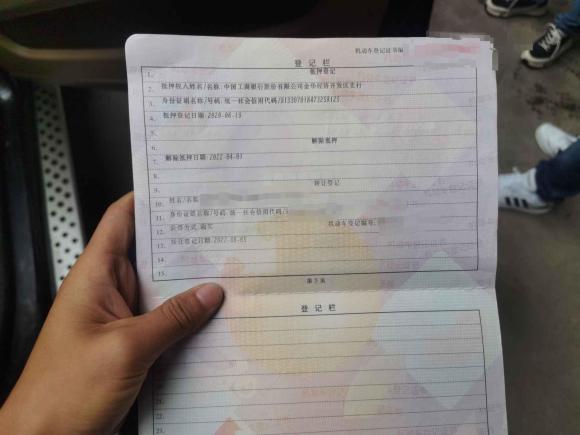 机动车登记证书编
登 记 栏
1. 抵押登记
2. 抵押权人姓名/名称:中国工商银行股份有限公司金华经济开发区支行
3. 身份证明名称/号码:统一社会信用代码/
4. 抵押登记日期:2020-06-19
5.
6. 解除抵押
7. 解除抵押日期:2022-04-01
8.
9. 转让登记
10. 姓名/名称
11. 身份证明名称/号码:统一社会信用代码/
12. 获得方式:购买 机动车登记编号:
13. 转让登记日期:2022-08-05
14.
15.
第 3 页
登 记 栏